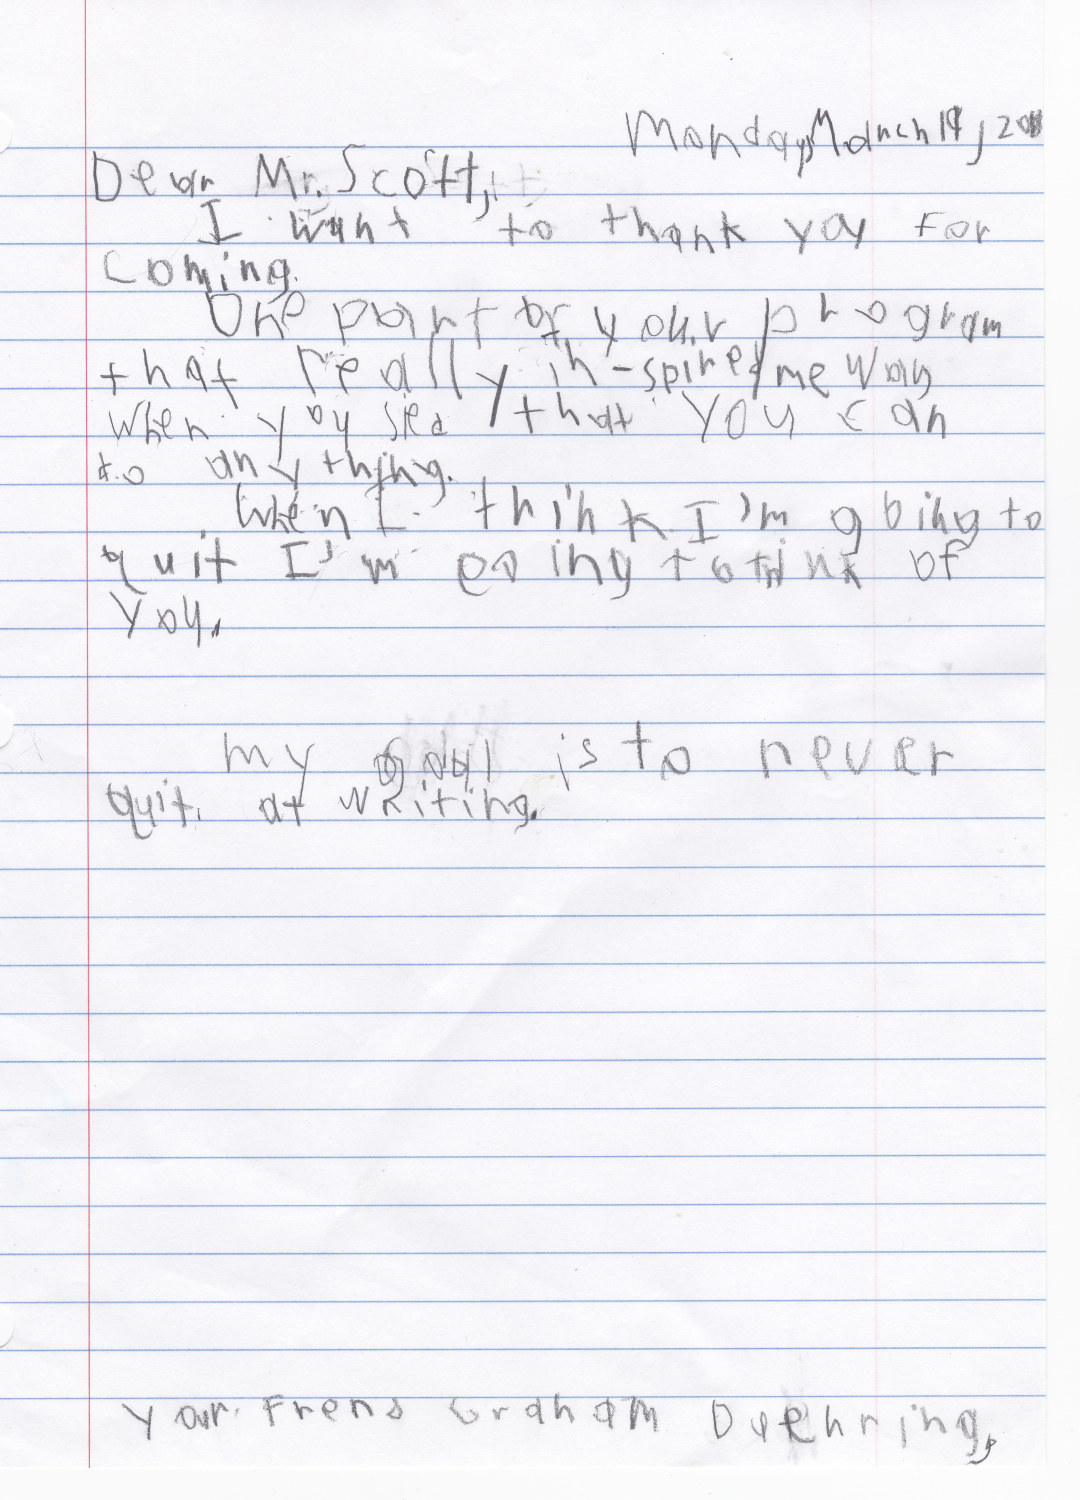 Monday, March 14, 2011
Dear Mr. Scott,
I want to thank you For
Coming.
One part of your program
that really in-spired me was
when you sied that you can
do anything.
When I think I'm going to
quit I'm going to think of
you.
my goal is to never
quit. at writing.
Your Frend Graham Duehring,